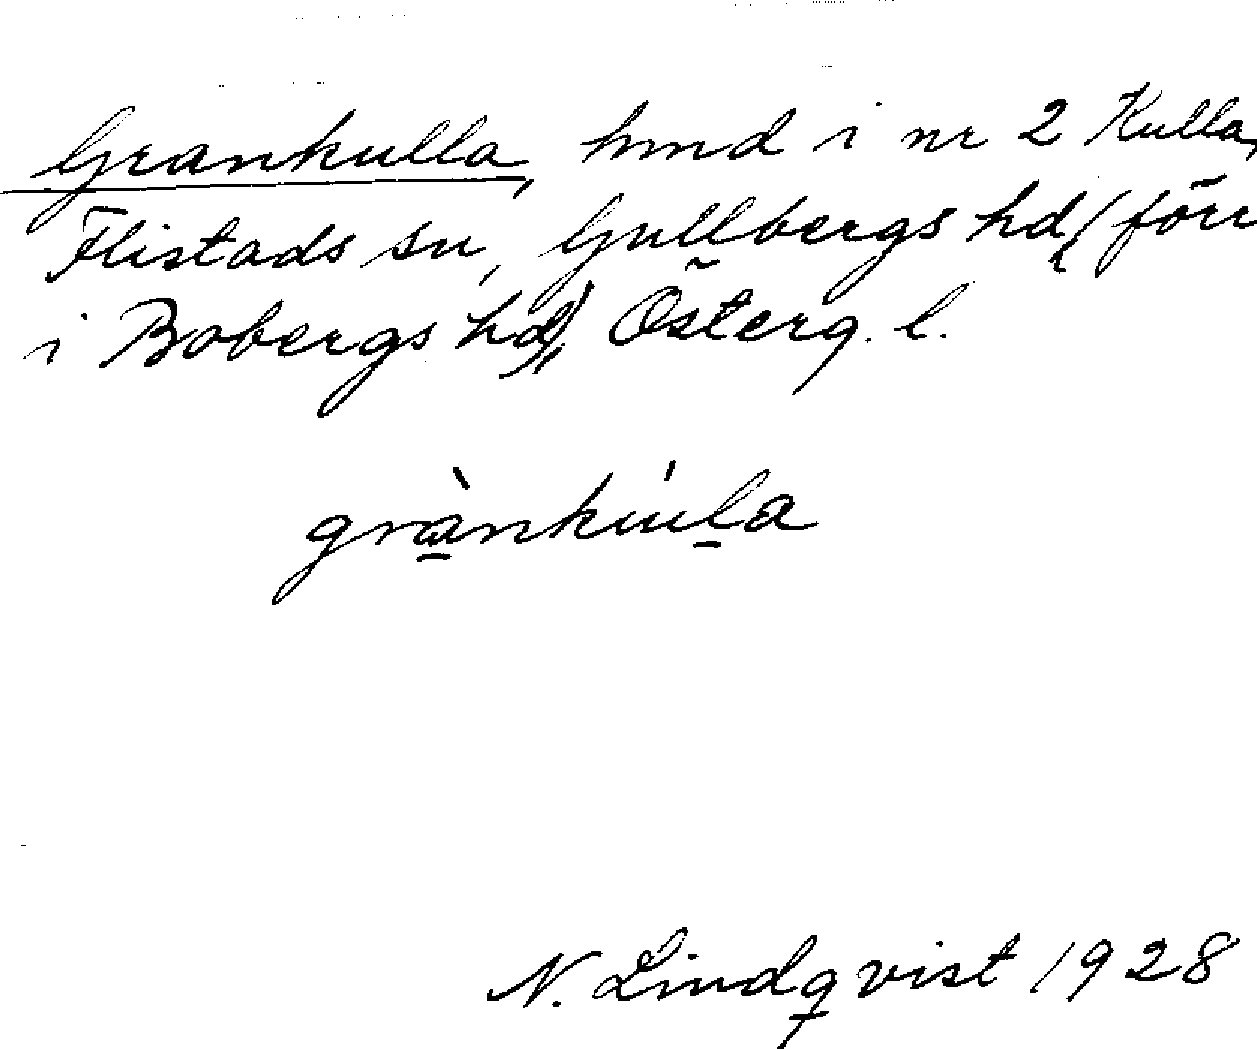 Grankulla, hmd i nr 2 Kulla,
Flistads sn, Gullbergs hd (förr
i Bobergs hd), Österg. l.
grànkúla
N. Lindqvist 1928